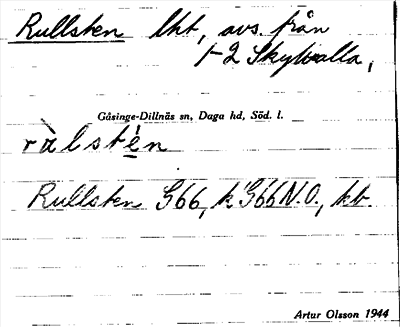 Rullsten lht, avs. från
1-2 Skyttvalla,
Gåsinge-Dillnäs sn, Daga hd, Söd. l.
ràlstén
Rullsten G66, k G66 N.O., kb.
Artur Olsson 1944